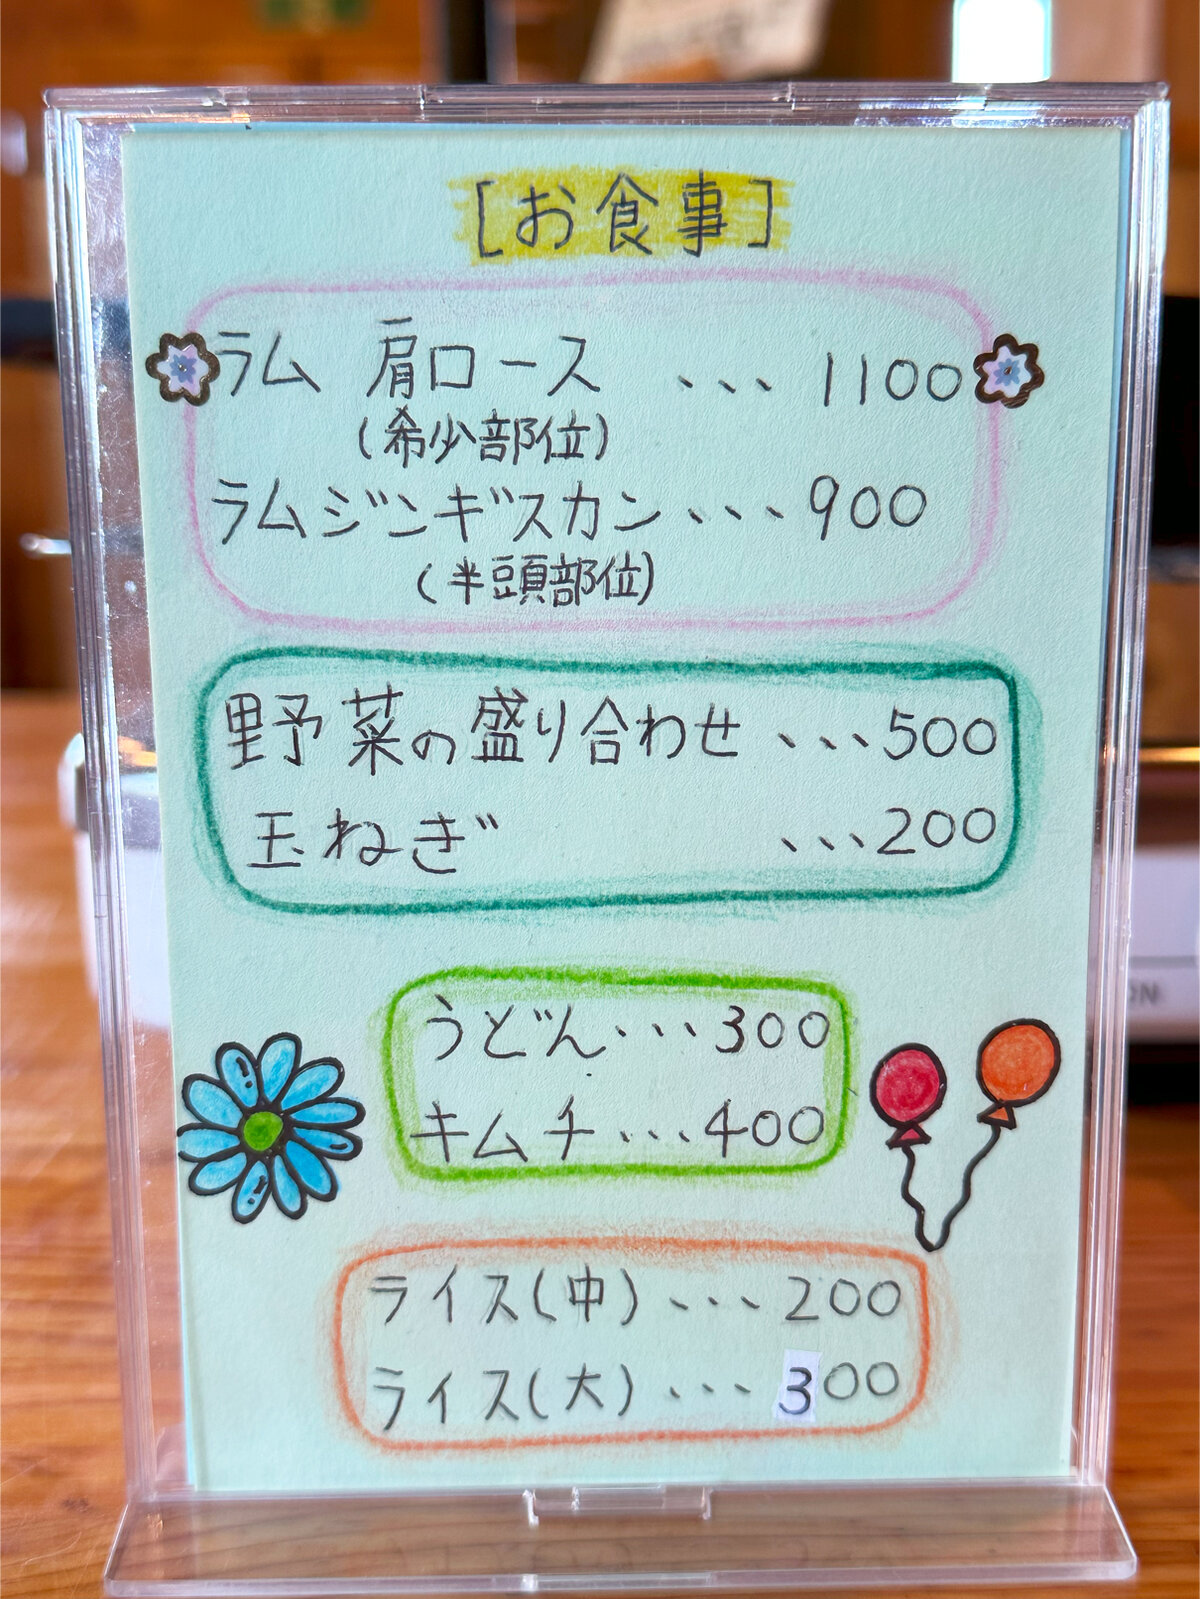 [お食事]
ラム 肩ロース ... 1100
(希少部位)
ラムジンギスカン ... 900
(半頭部位)
野菜の盛り合わせ ... 500
玉ねぎ ... 200
うどん ... 300
キムチ ... 400
ライス(中) ... 200
ライス(大) ... 300